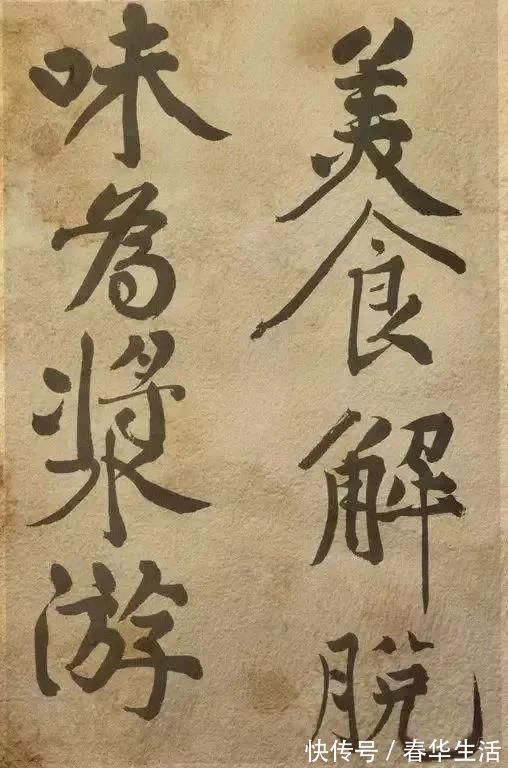 美食解脫
味為漿游
快传号 / 春华生活